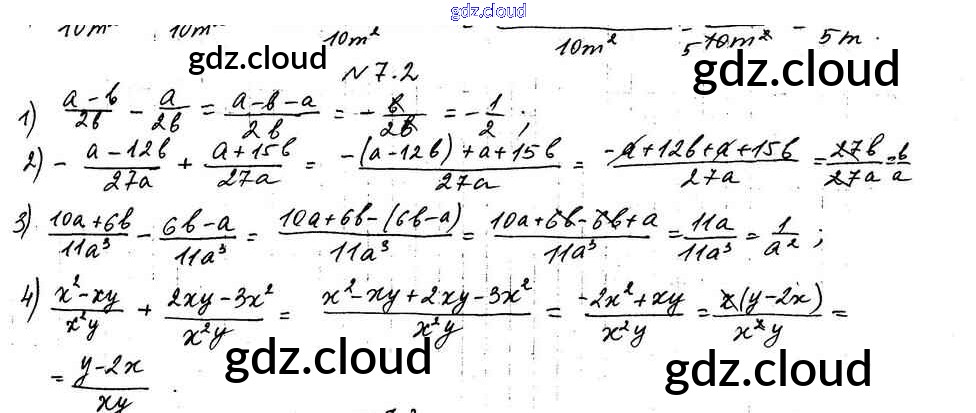 gdz.cloud
10m² 10m² 10m² 10m² 5 10m² 5m.
gdz.cloud
№7.2
gdz.cloud
1) (a-b)/2b - a/2b = (a-b-a)/2b = -b/2b = -1/2 ;
2) -(a-12b)/27a + (a+15b)/27a = (-(a-12b)+a+15b)/27a = (-a+12b+a+15b)/27a = 27b/27a = b/a
3) (10a+6b)/11a³ - (6b-a)/11a³ = (10a+6b-(6b-a))/11a³ = (10a+6b-6b+a)/11a³ = 11a/11a³ = 1/a² ;
4) (x²-xy)/x²y + (2xy-3x²)/x²y = (x²-xy+2xy-3x²)/x²y = (-2x²+xy)/x²y = x(y-2x)/x²y =
gdz.cloud gdz.cloud
= (y-2x)/xy .